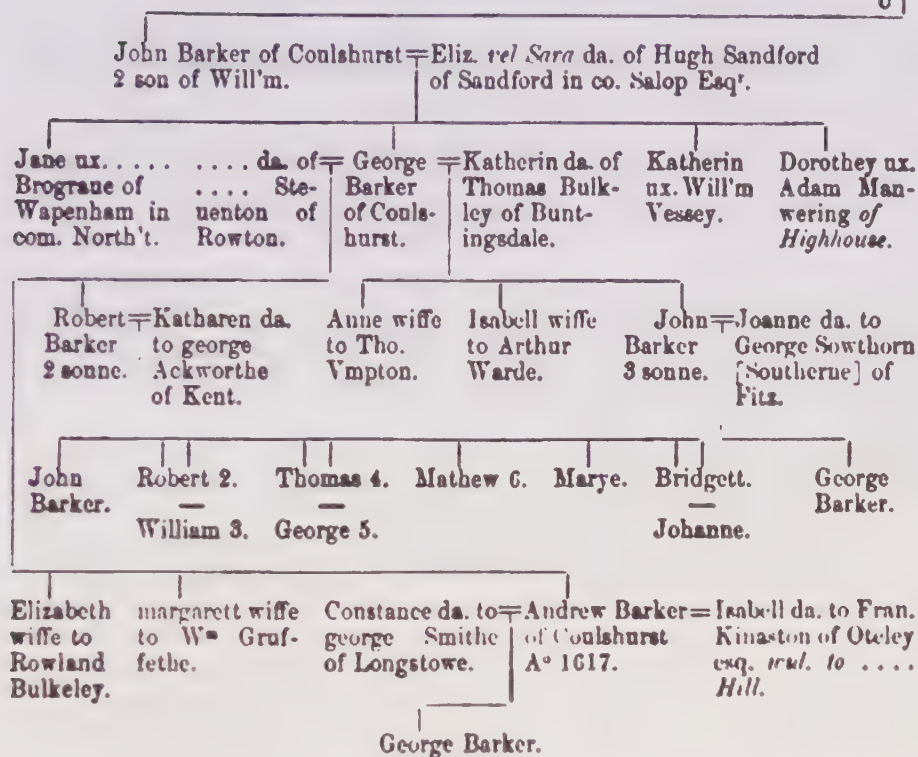 John Barker of Coulshurst = Eliz. vel Sara da. of Hugh Sandford
2 son of Will'm. of Sandford in co. Salop Esqr.
Jane ux. . . . . .
Brograne of
Wapenham in
com. North't.
. . . . da. of =
. . . . Ste-
uenton of
Rowton.
George =
Barker
of Couls-
hurst.
Katherin da. of
Thomas Bulk-
ley of Bunt-
ingsdale.
Katherin
ux. Will'm
Vessey.
Dorothey ux.
Adam Man-
wering of
Highhouse.
Robert =
Barker
2 sonne.
Katharen da.
to george
Ackworthe
of Kent.
Anne wiffe
to Tho.
Vmpton.
Isabell wiffe
to Arthur
Warde.
John =
Barker
3 sonne.
Joanne da. to
George Sowthorn
[Southerne] of
Fitz.
John
Barker.
Robert 2.
—
William 3.
Thomas 4.
—
George 5.
Mathew 6.
Marye.
Bridgett.
—
Johanne.
George
Barker.
Elizabeth
wiffe to
Rowland
Bulkeley.
margarett wiffe
to Wm Gruf-
fethe.
Constance da. to =
george Smithe
of Longstowe.
Andrew Barker =
of Coulshurst
Ao 1617.
Isabell da. to Fran.
Kinaston of Oteley
esq. to . . . .
Hill.
George Barker.